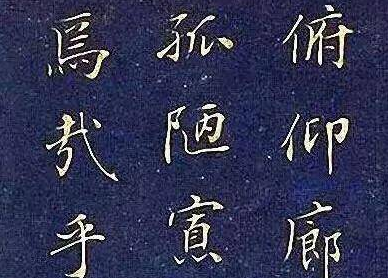 俯仰廊
孤陋寡
焉哉乎